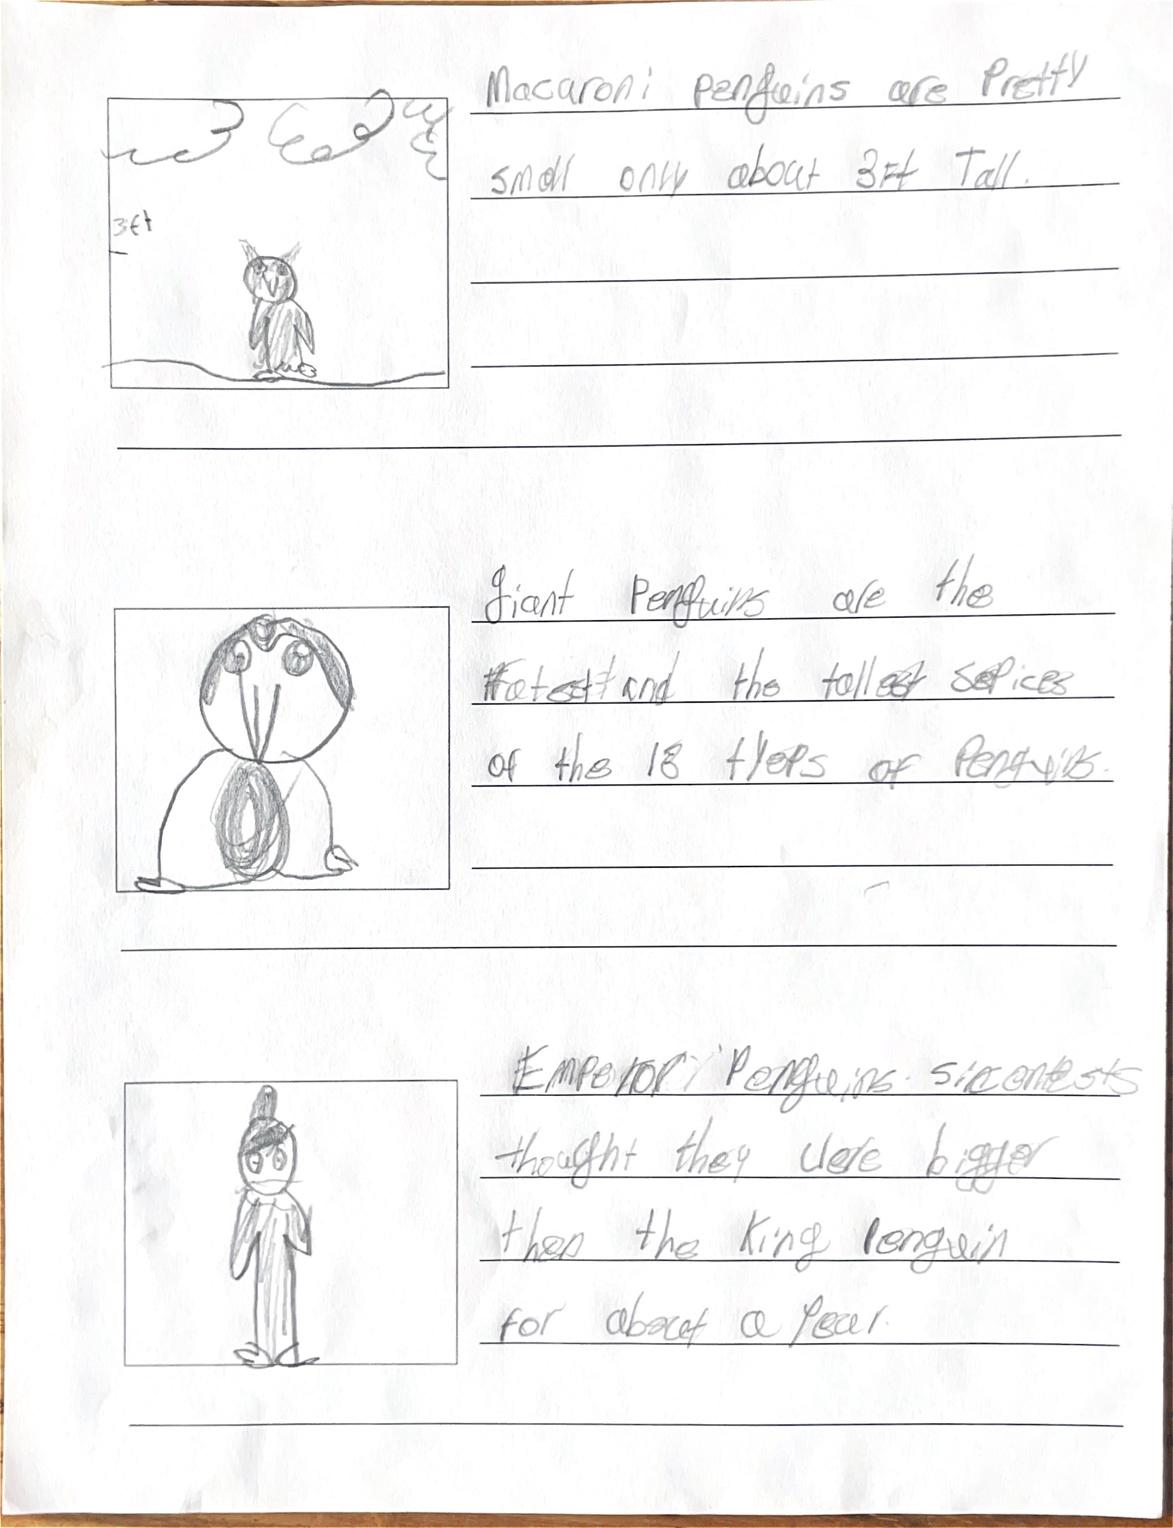 Macaroni penguins are Pretty
small only about 3Ft Tall.
3ft
giant Penguins are the
fatest and the tallest sepices
of the 18 tyeps of Penguins.
Emperor Penguins. sincontests
thought they were bigger
then the King Penguin
for about a year.